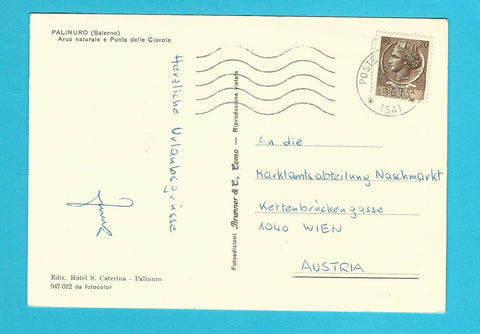 PALINURO (Salerno)
Arco naturale e Punta delle Ciavole
Herzliche Urlaubsgrüsse
Ediz. Hotel S. Caterina - Palinuro
947-012 da fotocolor
Fotoedizioni Brunner & C., Como — Riproduzione vietata
20
POSTE
(SA)
An die
Marktamtsabteilung Naschmarkt
Kettenbrückengasse
1040 WIEN
AUSTRIA